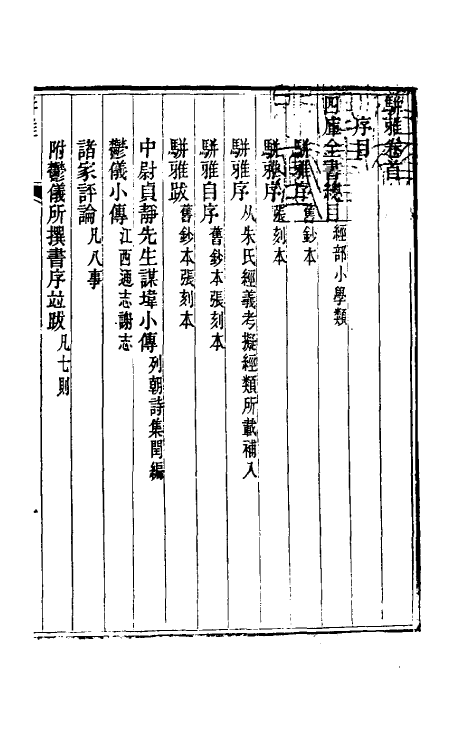 駢雅卷首
序目
四庫全書總目經部小學類
駢雅序舊鈔本
駢雅序張刻本
駢雅序从朱氏經義考擬經類所載補入
駢雅自序舊鈔本張刻本
駢雅跋舊鈔本張刻本
中尉貞靜先生謀㙔小傳列朝詩集閏編
鬱儀小傳江西通志謝志
諸家評論凡八事
附鬱儀所撰書序竝跋凡七則